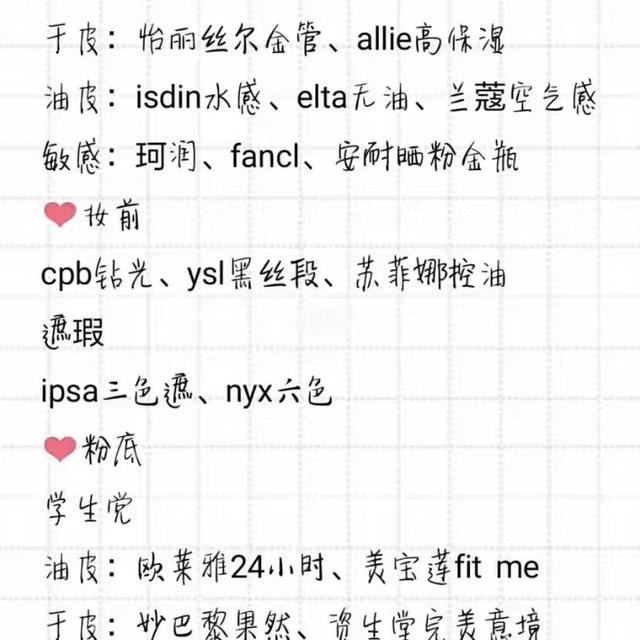 干皮：怡丽丝尔金管、allie高保湿
油皮：isdin水感、elta无油、兰蔻空气感
敏感：珂润、fancl、安耐晒粉金瓶
❤妆前
cpb钻光、ysl黑丝段、苏菲娜控油
遮瑕
ipsa三色遮、nyx六色
❤粉底
学生党
油皮：欧莱雅24小时、美宝莲fit me
干皮：妙巴黎果然、资生堂完美意境